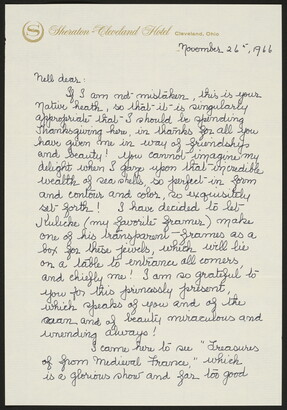 Sheraton-Cleveland Hotel Cleveland, Ohio
November 26th, 1966
Nell dear:
If I am not mistaken, this is your
native heath, so that it is singularly
appropriate that I should be spending
Thanksgiving here, in thanks for all you
have given me in way of friendship
and beauty! You cannot imagine my
delight when I gaze upon that incredible
wealth of sea shells so perfect in form
and contour and color, so exquisitely
set forth! I have decided to let
Kulicke (my favorite framer) make
one of his transparent frames as a
box for these jewels, which will lie
on a table to entrance all comers
and chiefly me! I am so grateful to
you for this princessly present,
which speaks of you and of the
ocean and of beauty miraculous and
unending always!
I came here to see "Treasures
of from Medieval France," which
is a glorious show and far too good